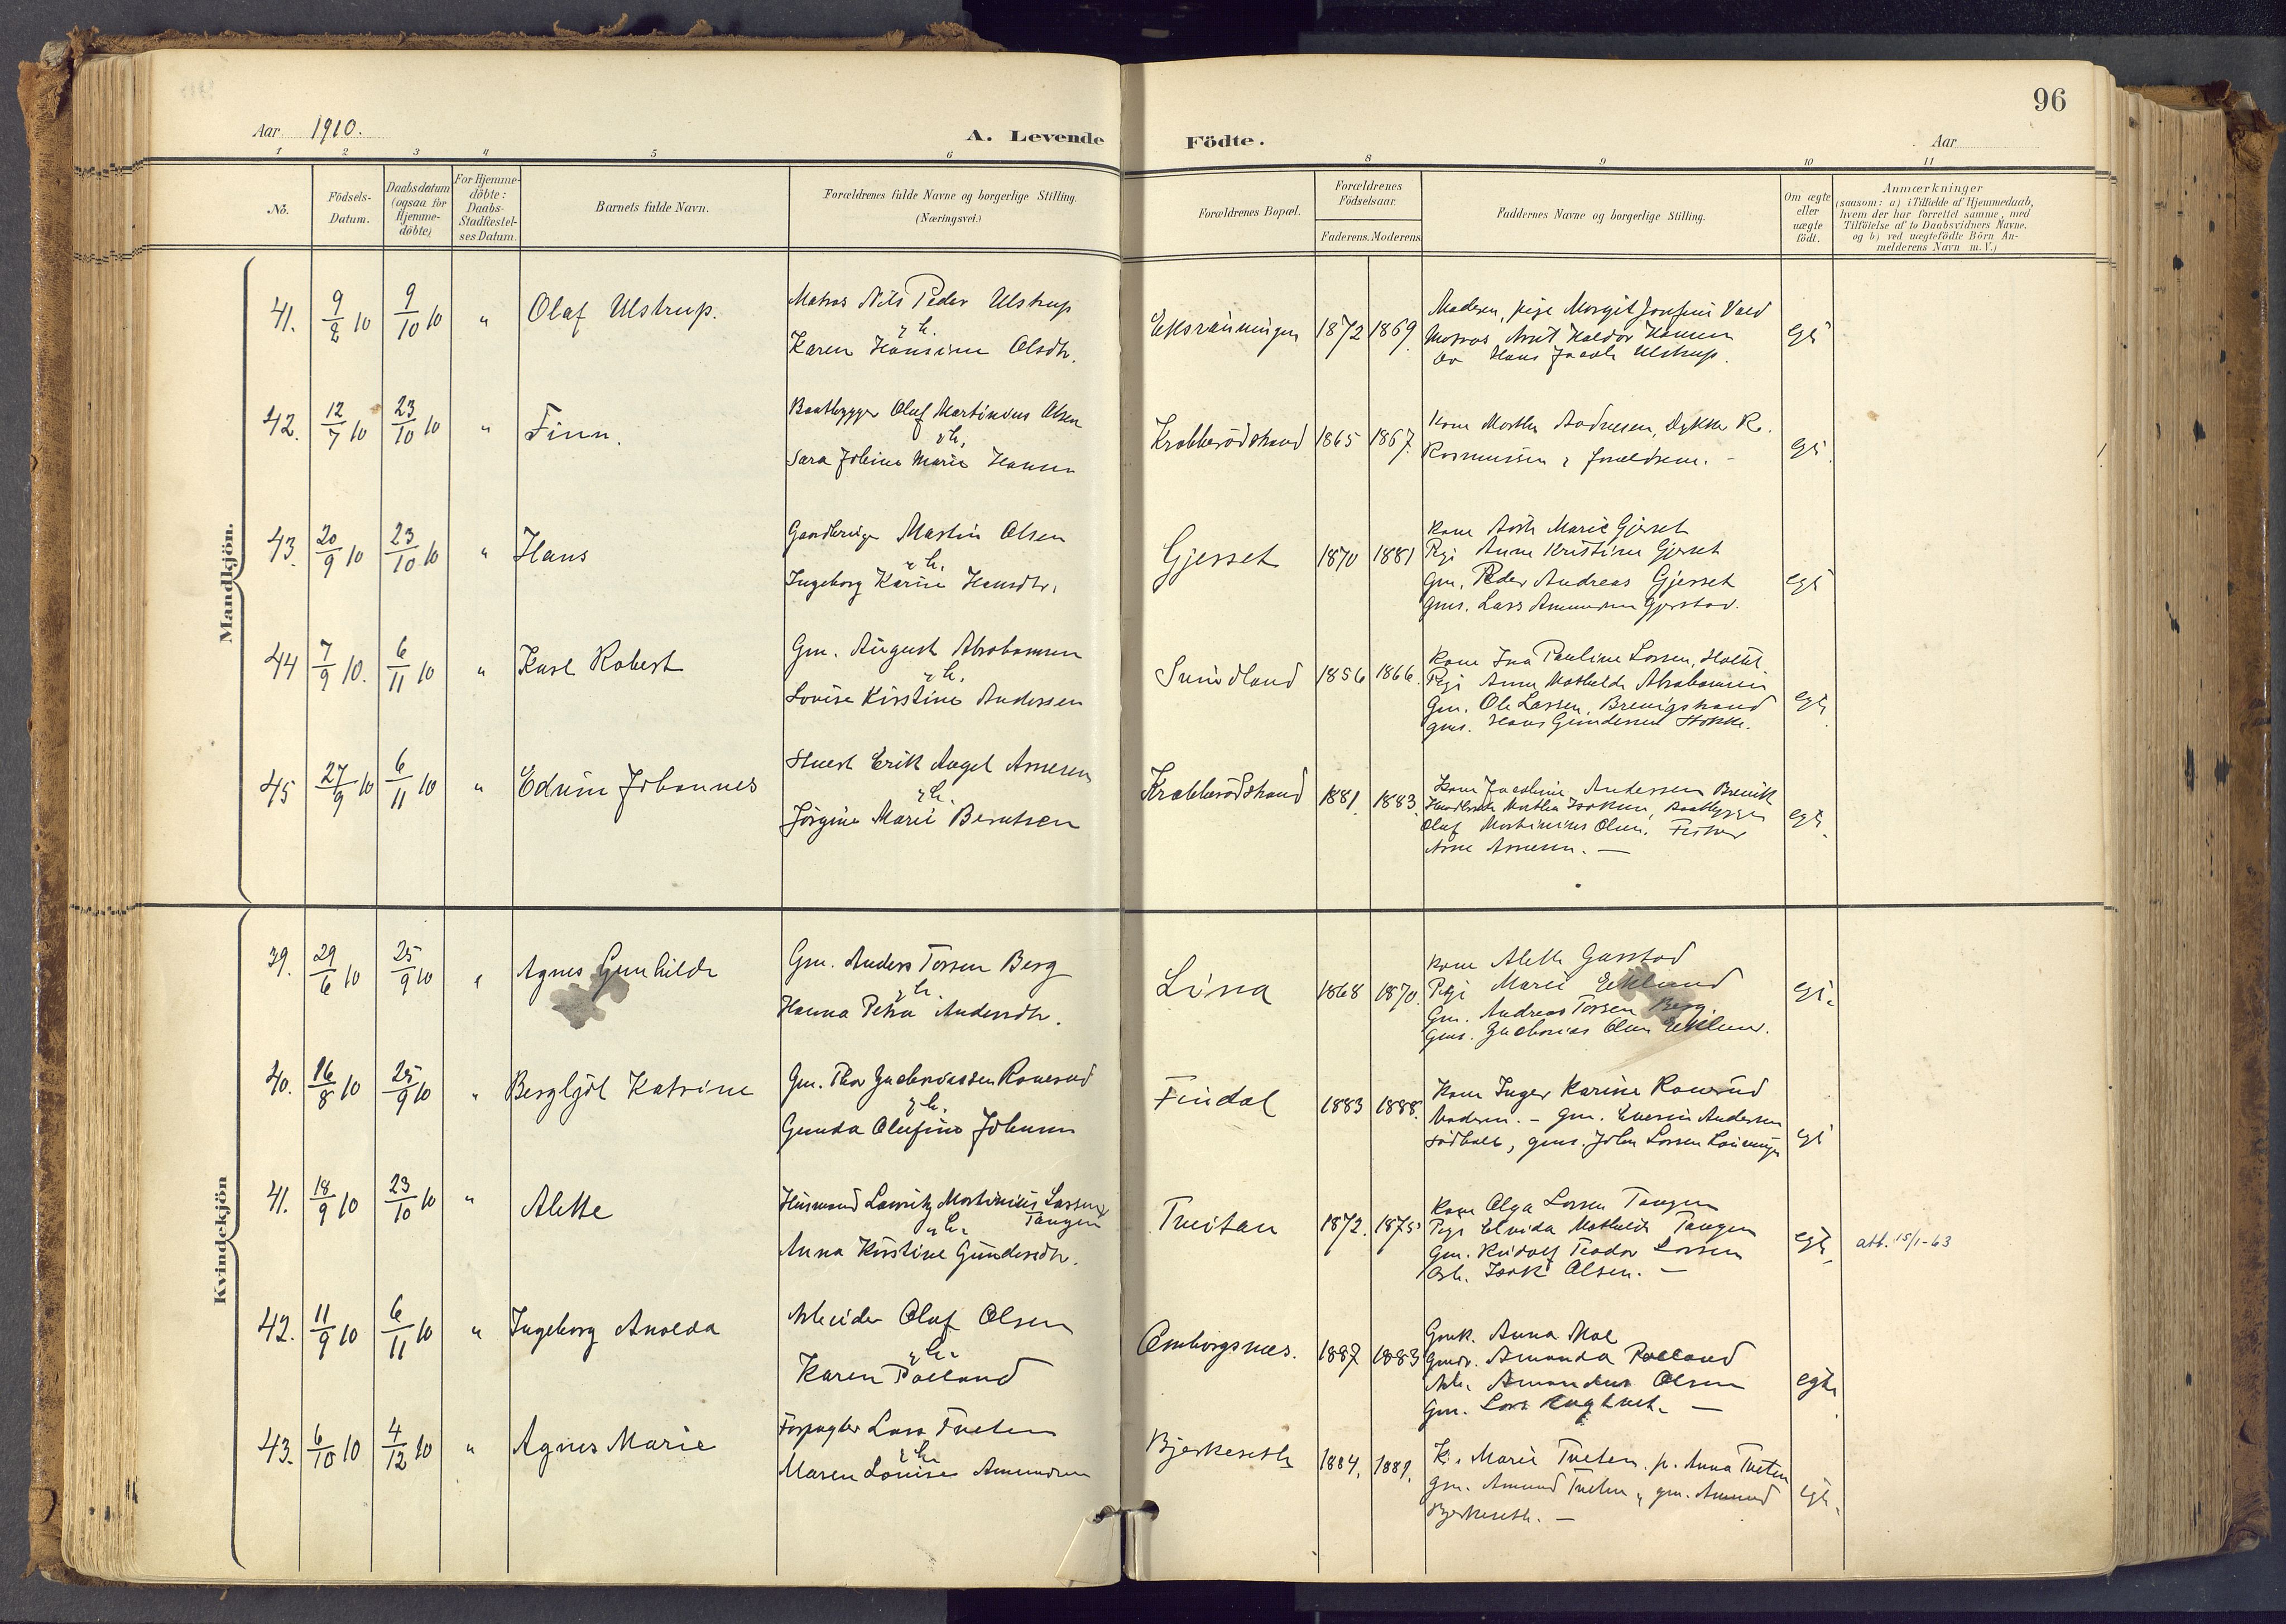 96
Aar 1910.
A. Levende Födte.
Aar
1 2 3 4 5 6 8 9 10 11
No.
Födsels-Datum.
Daabsdatum (ogsaa for Hjemme-döbte)
For Hjemme-döbte: Daabs-Stadfæstel-ses Datum.
Barnets fulde Navn.
Forældrenes fulde Navne og borgerlige Stilling.
(Næringsvei.)
Forældrenes Bopæl.
Forældrenes Födselsaar.
Faderens. Moderens
Faddernes Navne og borgerlige Stilling.
Om ægte eller uægte födt.
Anmærkninger
(saasom: a) i Tilfælde af Hjemmedaab,
hvem der har forrettet samme, med
Tilföielse af to Daabsvidners Navne.
og b) ved uægtefödte Börn An-
melderens Navn m. V.)
Mandkjön.
41. 9/2 10 9/10 10 " Olaf Ulstrup.
Matros Nils Peder Ulstrup
Karen Hansine Olsdtr.
1872 1869.
Moderen, pige Margit Josefine
Hans Jacob Ulstrup.
egte
42. 12/7 10 23/10 10 " Finn.
Baatbygger Oluf Martinius Olsen
Sara Jobine Marie Hansen
Krabberödstrand 1865 1867.
Kone Marthe Andresen, Dykker R.
Rasmussen & forældrene. -
egte
43. 20/9 10 23/10 10 " Hans
Gaardbruger Martin Olsen
Ingeborg Karine Hansdtr.
Gjerset 1870 1881
Kone Marie Gjerset
Pige Anne Kristine Gjerset
Gm. Peder Andreas Gjerset
Gms. Lars Amundsen
egte
44 7/9 10. 6/11 10 " Karl Robert
Gm. August Abrahamsen
Lovise Kirstine Andersen
Sundland 1856 1866.
Kone Ina Pauline Larsen,
Pige Anne Mathilde Abrahamsen
Gm. Ole Larsen,
gms. Hans Gundersen
egte
45 27/9 10 6/11 10 " Edvin Johannes
Erik Angel Arnesen
Jörgine Marie Berntsen
Krabberödstrand 1881. 1883.
Kone Jacobine Andersen Brevik
Baatbygger
Oluf Martinius Olsen. Fisker
Arne Arnesen. -
egte.
Kvindekjön
39. 29/6 10 25/9 10 " Agnes Gunhilde
Gm. Anders Torsen Berg
Hanna Petra Andersdtr.
Lina 1868 1870.
Kone Alette
Pige Marie Eklund
Gm. Andreas Torsen Berg.
Gms. Zacharias Olsen
egte.
40. 16/8 10 25/9 10 " Bergljöt Katrine
Gm. Thor Zachariassen Ronerud
Gunda Olufine Johnsen
Findal 1883 1888.
Kone Inger Karine Ronerud
Moderen. - gm. Andersen
gms. John Larsen
egte
41. 18/9 10 23/10 10 " Alette
Husmand Lauritz Martinius Larsen
Tangen
Anna Kirstine Gundersdtr.
Treitan 1872. 1875
Kone Olga Larsen Tangen
Pige Elvida Mathilde Tangen
Gm. Rudolf Teodor Larsen
Arb. Isak Olsen. -
egte.
att. 15/1-63
42. 11/9 10 6/11 10 " Ingeborg Anolda
Arbeider Olaf Olsen
Karen Paeland
1887 1883
Gmk. Anna Moe
Gmdr. Amanda
Arb. Amandus Olsen
Gm. Lars -
egte
43. 6/10 10 4/12 10 " Agnes Marie
Forpagter Lars Tveten
Maren Louise Amundsen
Bjerkeseth 1884. 1889.
K. Marie Tveten. p. Anna Tveten
gm. Amund Tveten, gm. Amund
Bjerkeseth. -
egte.